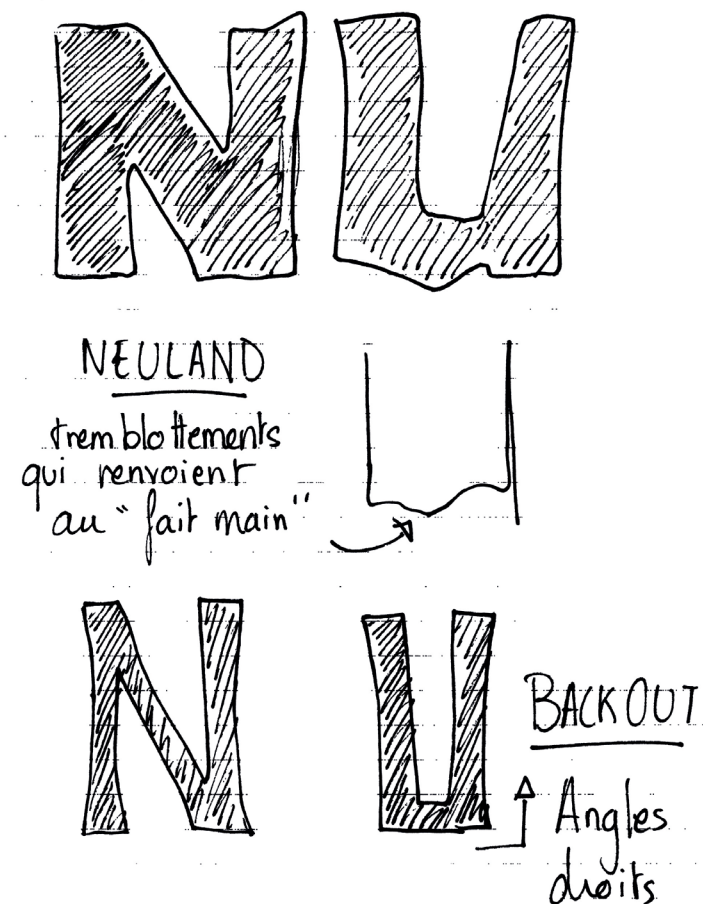 NU
NEULAND
tremblottements
qui renvoient
au "fait main"
NU
BACKOUT
Angles
droits